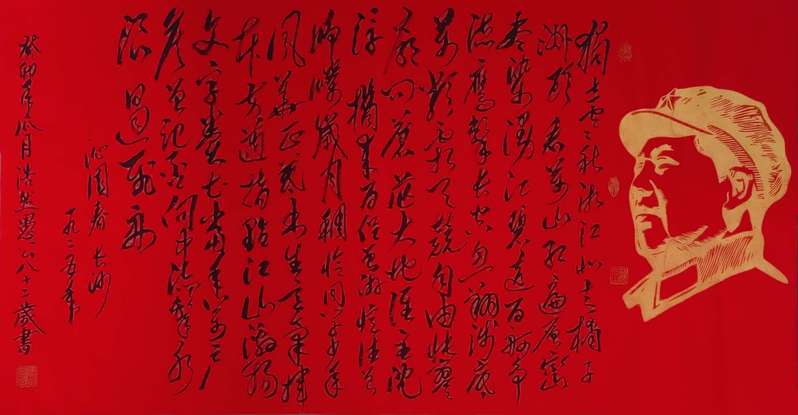 独立寒秋湘江北去橘子
洲头看万山红遍层
尽染漫江碧透百舸争
流鹰击长空鱼翔浅底
万类霜天竞自由怅寥
廓问苍茫大地谁主沉
浮携来百侣曾游忆往昔
峥嵘岁月稠恰同学少年
风华正茂书生意气挥
斥方遒指点江山激扬
文字粪土当年万户
侯曾记否到中流击水
浪遏飞舟
沁园春长沙
一九二五年
癸卯年八月浩然愚公八十二岁书